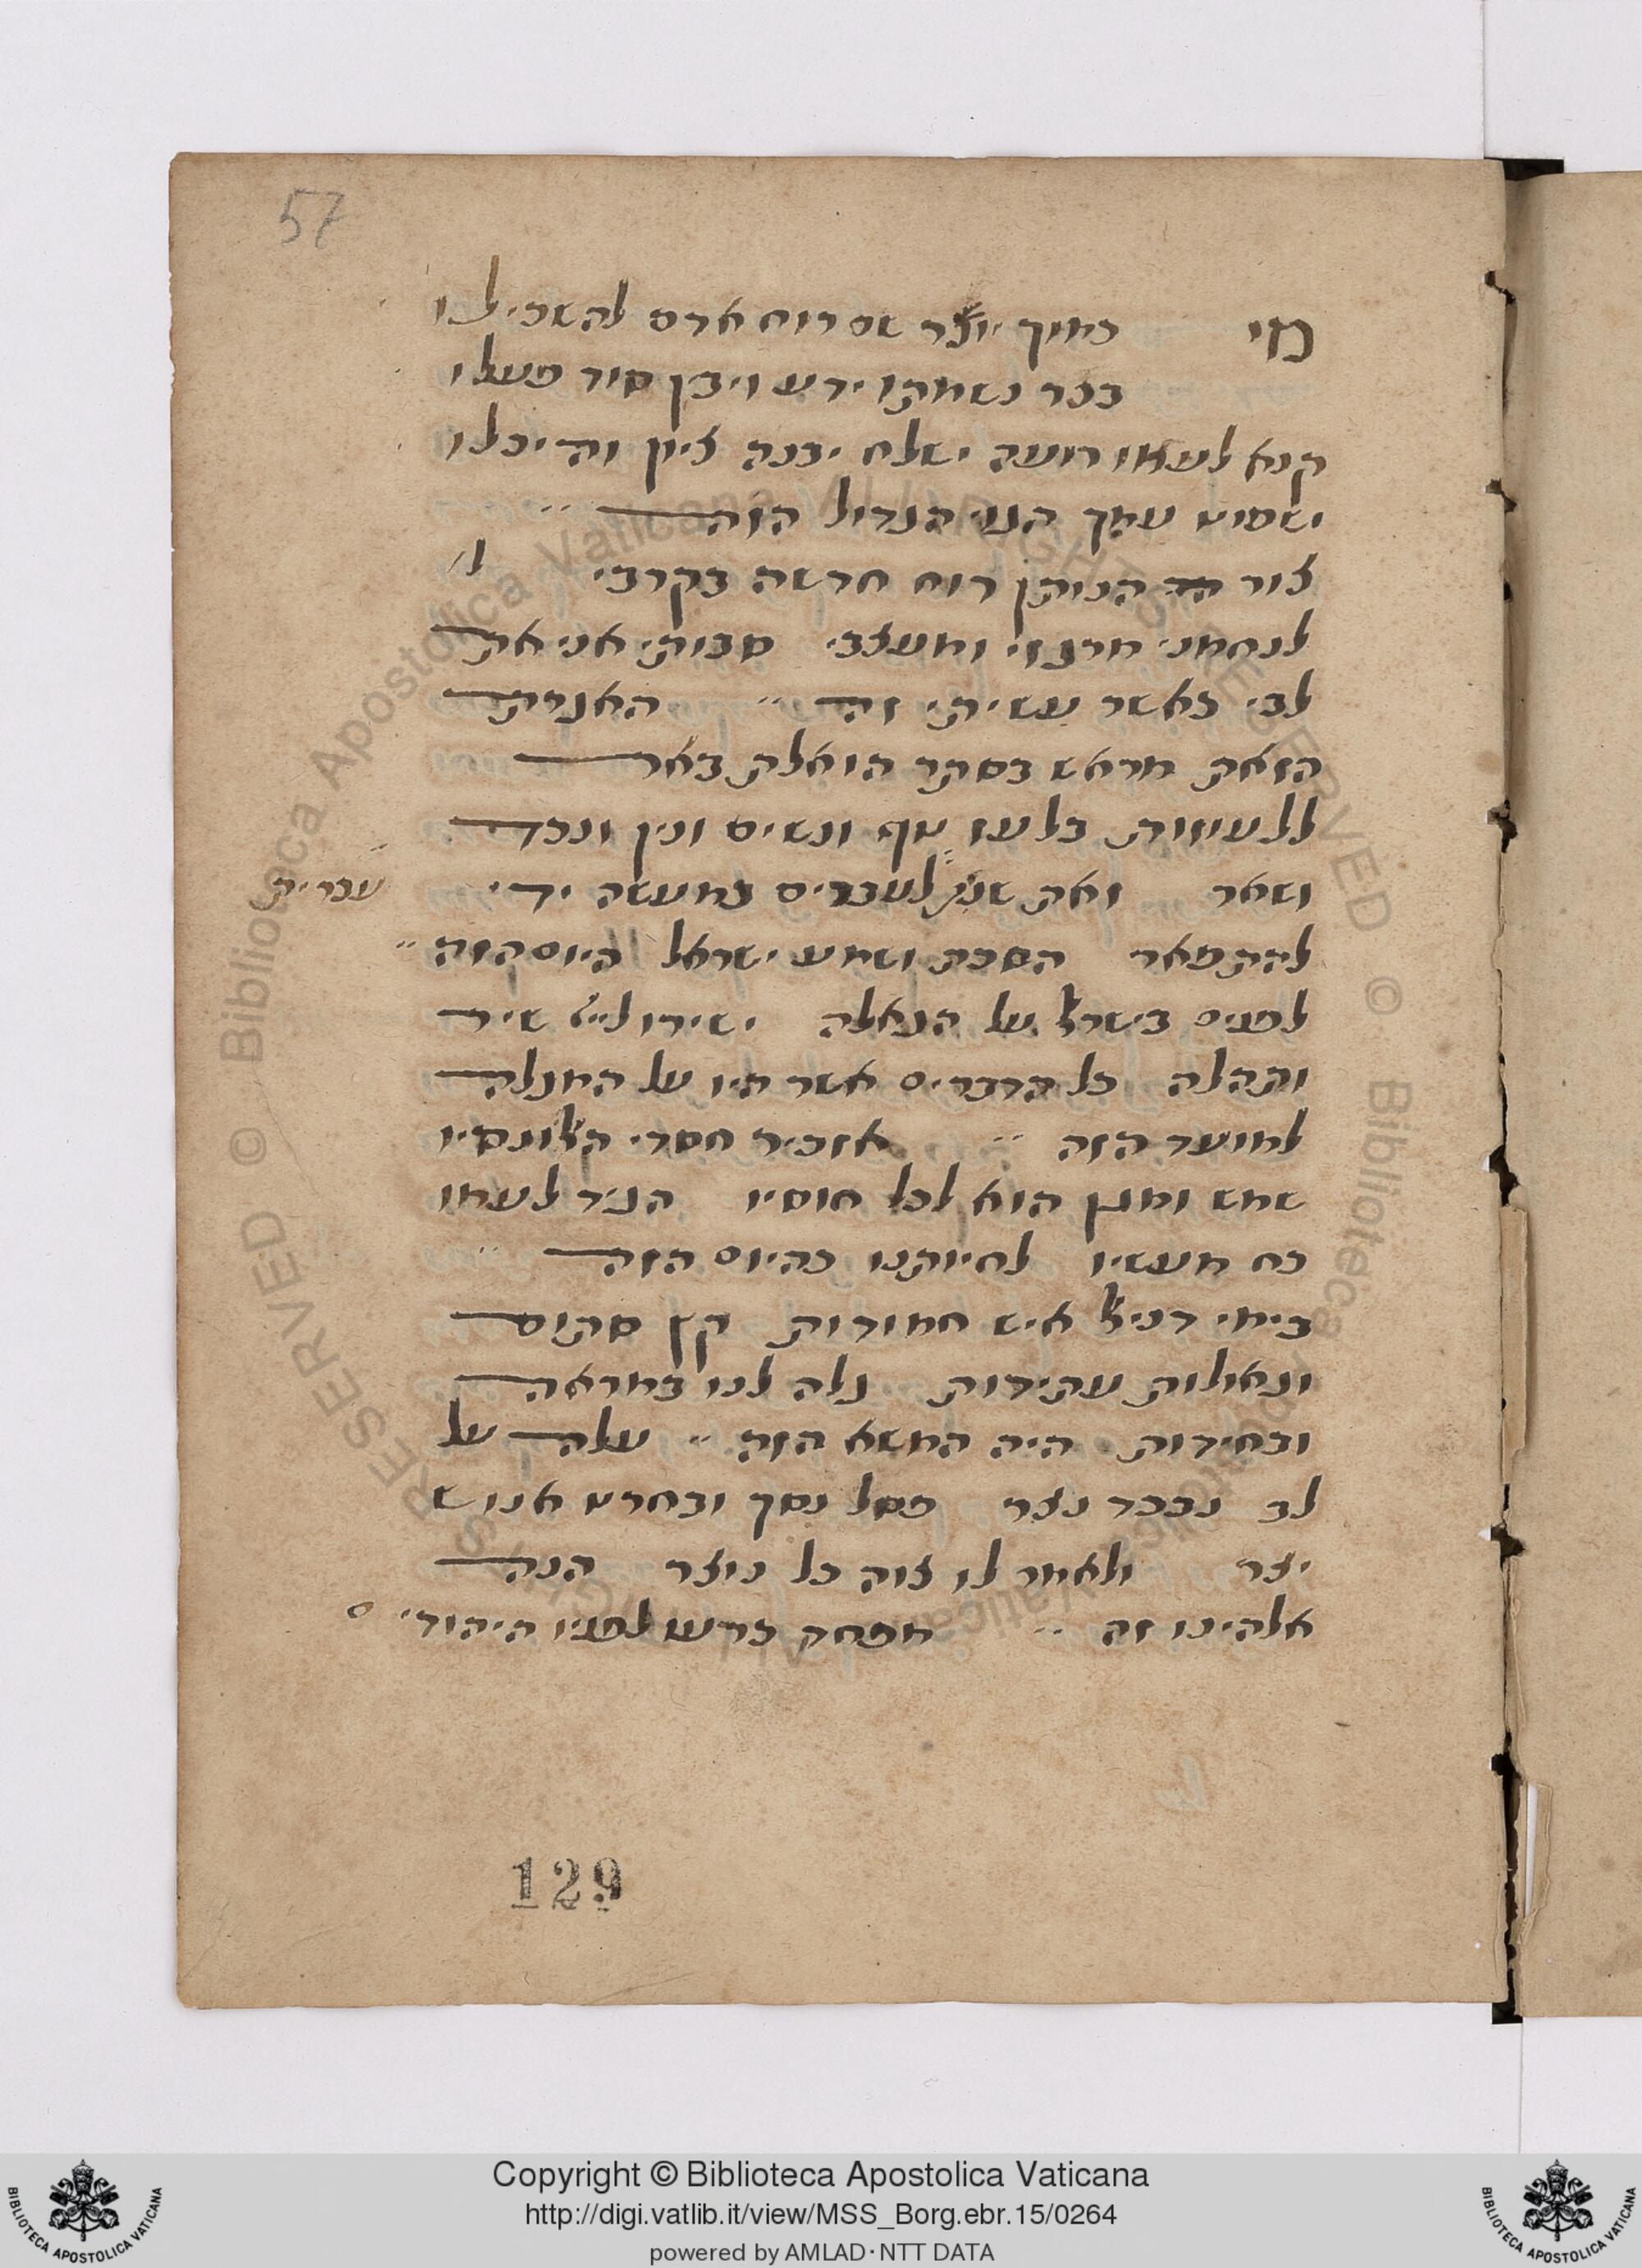 57
מי כמוך יוצר שם רוח אדם להשכילו
בכר נשמתו ידע ויבין סוד פעלו
קנא לעמו רועה ישלח יבנה ציון והיכלו
ישמיע עמך הגוי הגדול הזה
צור הנותן רוח חדשה בקרבי
לנחמני מרגזי ומעצבי סבותי אני את
לבי כאשר עשיתי זה האגרת
הזאת מראש בסתר הואלת באר
ללעוזות בלעז טף ונשים ונין ונכד
ושאר ואת שנית לעברים במעשה ידי עברית
להתפאר הסכת ושמע ישראל היום הזה
לפנים בישראל על הגאלה ישירו לייי שיר
ותהלה כל הדברים אשר היו על המגלה
למועד הזה אזכיר חסדי האל ונסיו
שמש ומגן הוא לכל חוסיו הגיד לעמו
כח מעשיו לחיותנו כהיום הזה
בימי דניאל איש חמודות קץ סתום
וגאולות עתידות גלה לנו במראה
ובחידות היה המשא הזה עלה על
לב נבכד נצר פסל נסך ובחרט אנוש
יצר ולאמר לו צוה כל נוצר הנה
אלהינו זה מפחק כרעו לפניו היהודי
129
Copyright © Biblioteca Apostolica Vaticana
http://digi.vatlib.it/view/MSS_Borg.ebr.15/0264
powered by AMLAD · NTT DATA
BIBLIOTECA APOSTOLICA VATICANA
BIBLIOTECA APOSTOLICA VATICANA